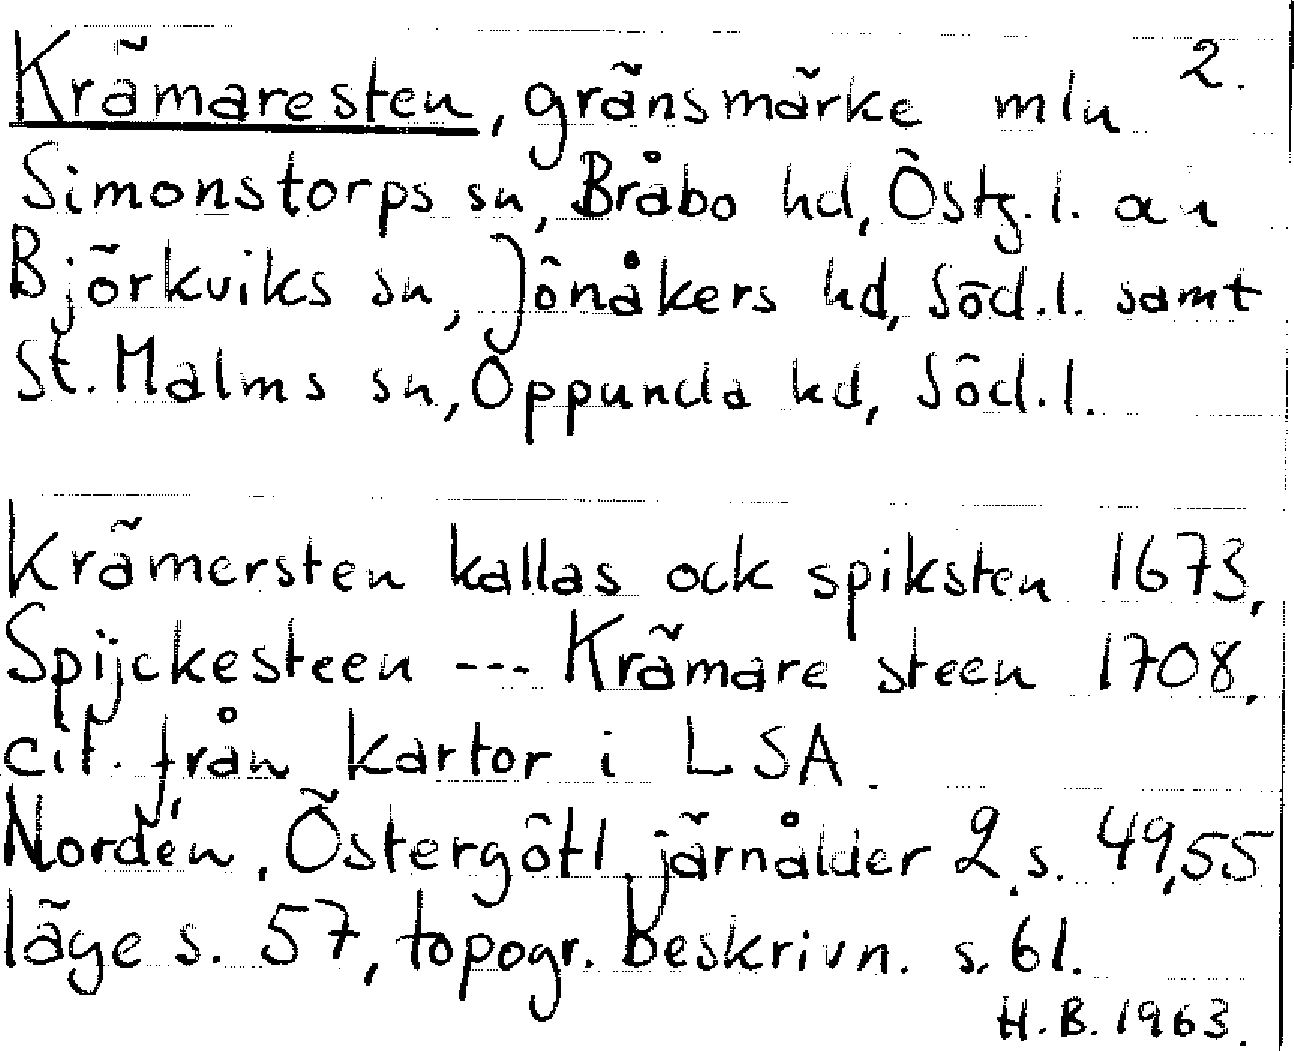 Krämaresten, gränsmärke mln 2.
Simonstorps sn, Bråbo hd, Östg. l. an
Björkviks sn, Jönåkers hd, Söd. l. samt
St. Malms sn, Oppunda hd, Söd. l.
Krämersten kallas ock spiksten 1673,
Spijckesteen --- Krämare steen 1708,
cit. från kartor i LSA.
Nordén, Östergötl. järnålder 2 s. 49,55
läge s. 57, topogr. beskrivn. s. 61.
H.B. 1963.